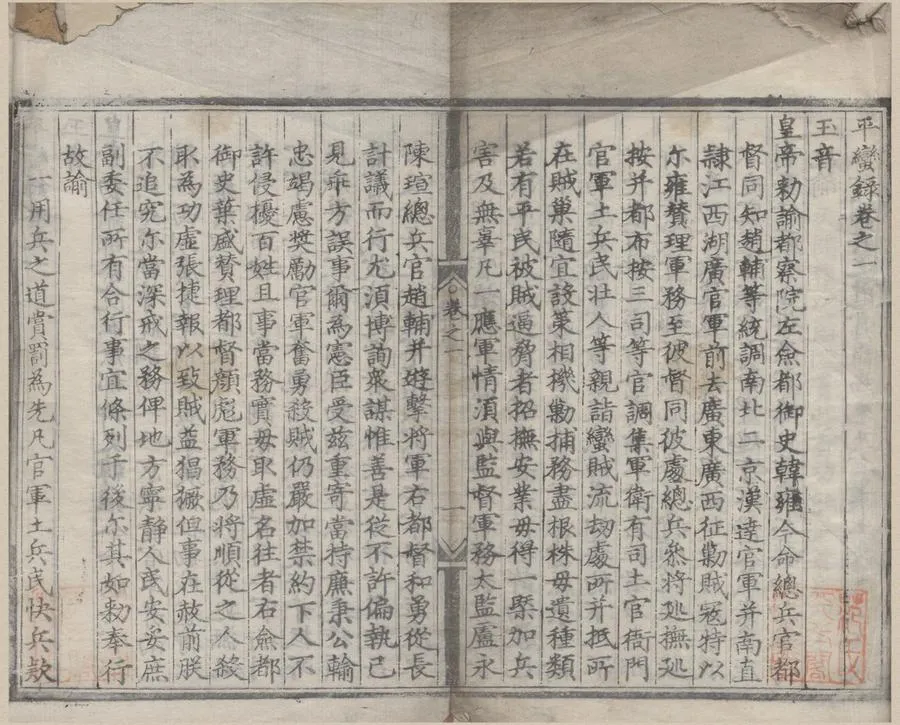 平蠻錄卷之一
玉音
皇帝勑諭都察院左僉都御史韓雍今命總兵官都
督同知趙輔等統調南北二京漢達官軍并南直
隸江西湖廣官軍前去廣東廣西征勦賊寇特以
尔雍賛理軍務至彼督同彼處總兵叅將廵撫廵
按并都布按三司等官調集軍衛有司土官衙門
官軍土兵民壯人等親詣蠻賊流劫處所并抵所
在賊巢隨宜設策相機勦捕務盡根株毋遺種類
若有平民被賊逼脅者招撫安業毋得一槩加兵
害及無辜凡一應軍情湏與監督軍務太監盧永
卷之一
一
陳瑄總兵官趙輔并遊擊將軍右都督和勇從長
計議而行尤湏博詢衆謀惟善是從不許偏執己
見乖方誤事爾為憲臣受兹重寄當持廉秉公輸
忠竭慮奬勵官軍奮勇殺賊仍嚴加禁約下人不
許侵擾百姓且事當務實毋取虛名往者右僉都
御史葉盛賛理都督顔彪軍務乃將順從之人殺
取為功虛張捷報以致賊益猖獗但事在赦前朕
不追究尔當深戒之務俾地方寧静人民安妥庶
副委任所有合行事宜條列于後尔其如勑奉行
故諭
一用兵之道賞罰為先凡官軍土兵民快兵欵